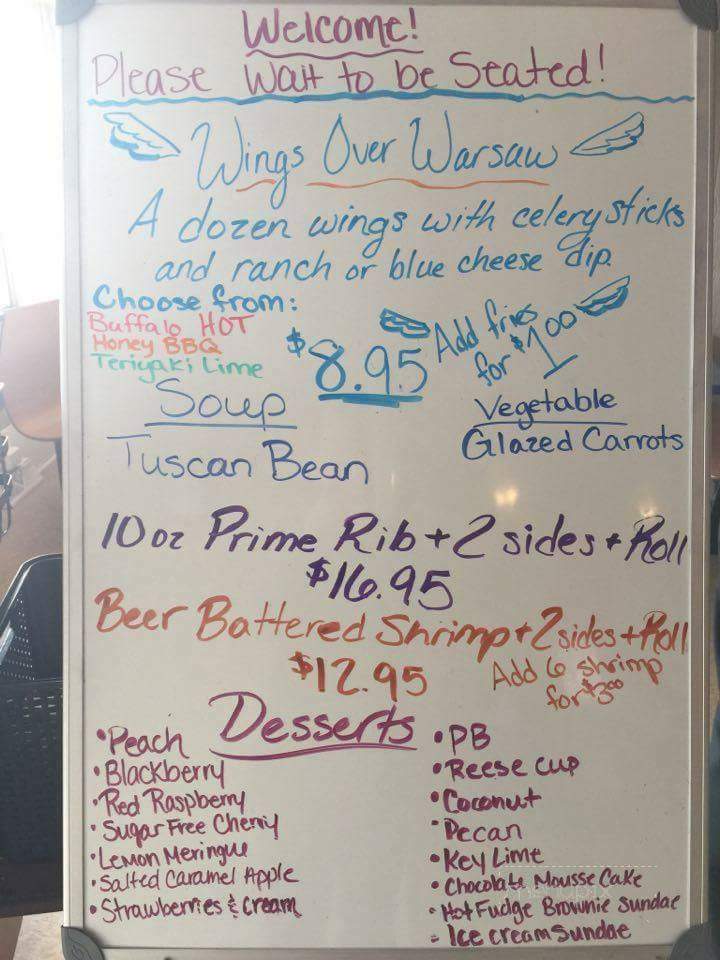 Welcome!
Please Wait to be Seated!
Wings Over Warsaw
A dozen wings with celery sticks
and ranch or blue cheese dip.
Choose from:
Buffalo HOT
Honey BBQ
Teriyaki Lime
$8.95
Add fries
for $1.00
Soup
Tuscan Bean
Vegetable
Glazed Carrots
10 oz Prime Rib + 2 sides + Roll
$16.95
Beer Battered Shrimp + 2 sides + Roll
$12.95
Add 6 shrimp
for $3.00
Desserts
• Peach
• Blackberry
• Red Raspberry
• Sugar Free Cherry
• Lemon Meringue
• Salted Caramel Apple
• Strawberries & Cream
• PB
• Reese cup
• Coconut
• Pecan
• Key Lime
• Chocolate Mousse Cake
• Hot Fudge Brownie Sundae
• Ice cream Sundae